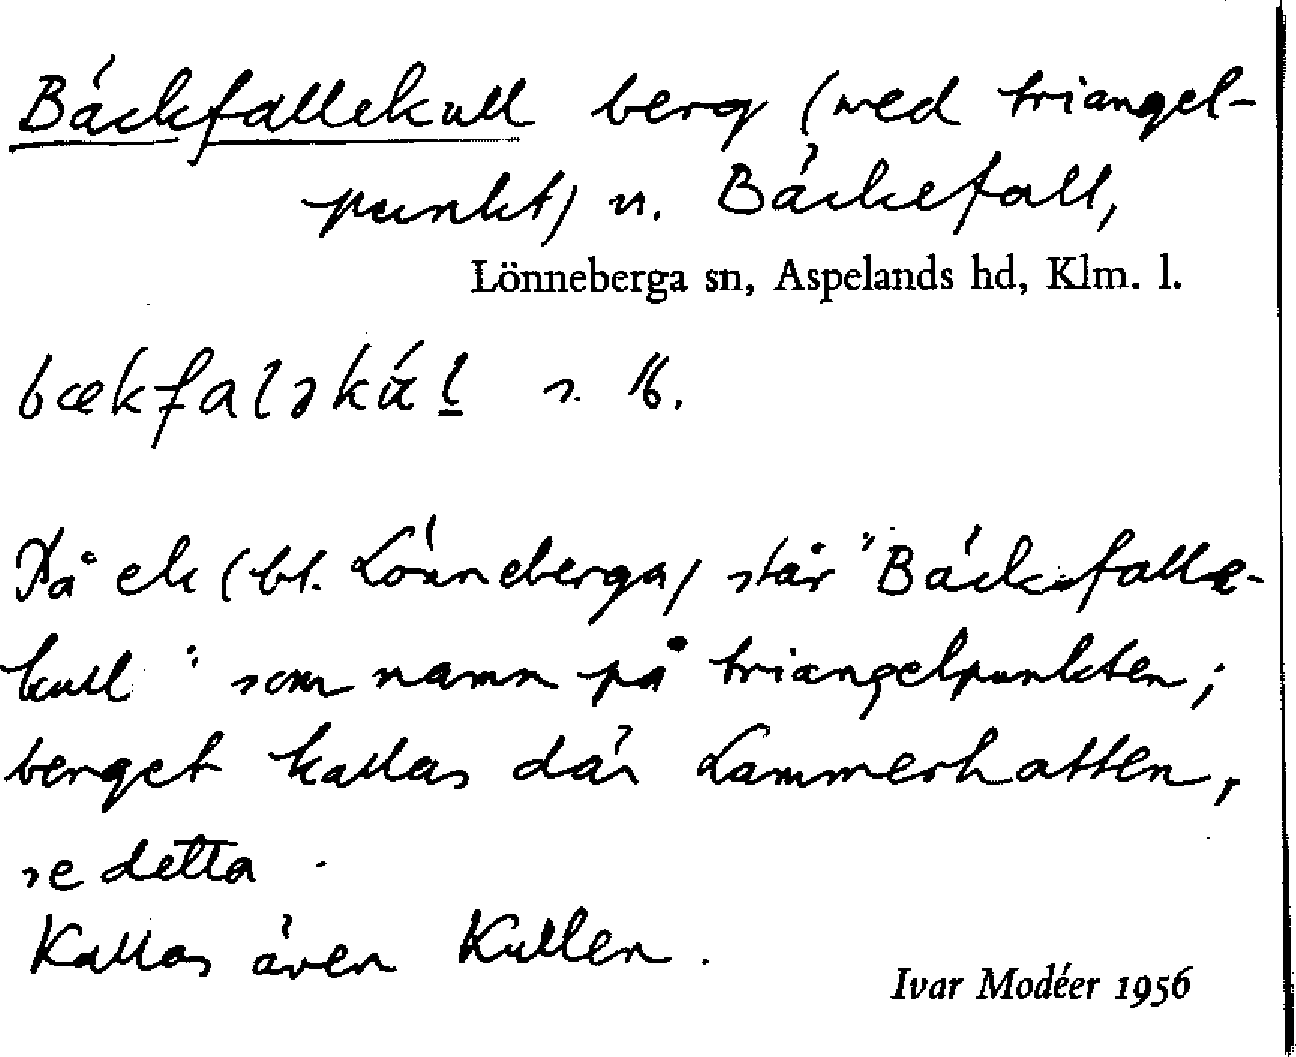 Bäckfallekull berg (med triangel-
punkt) n. Bäckefall,
Lönneberga sn, Aspelands hd, Klm. l.
bækfaləkúl
På ek (bl. Lönneberga) står "Bäckefalle-
kull" som namn på triangelpunkten;
berget kallas där Lammerhatten,
se detta.
Kallas även Kullen.
Ivar Modéer 1956